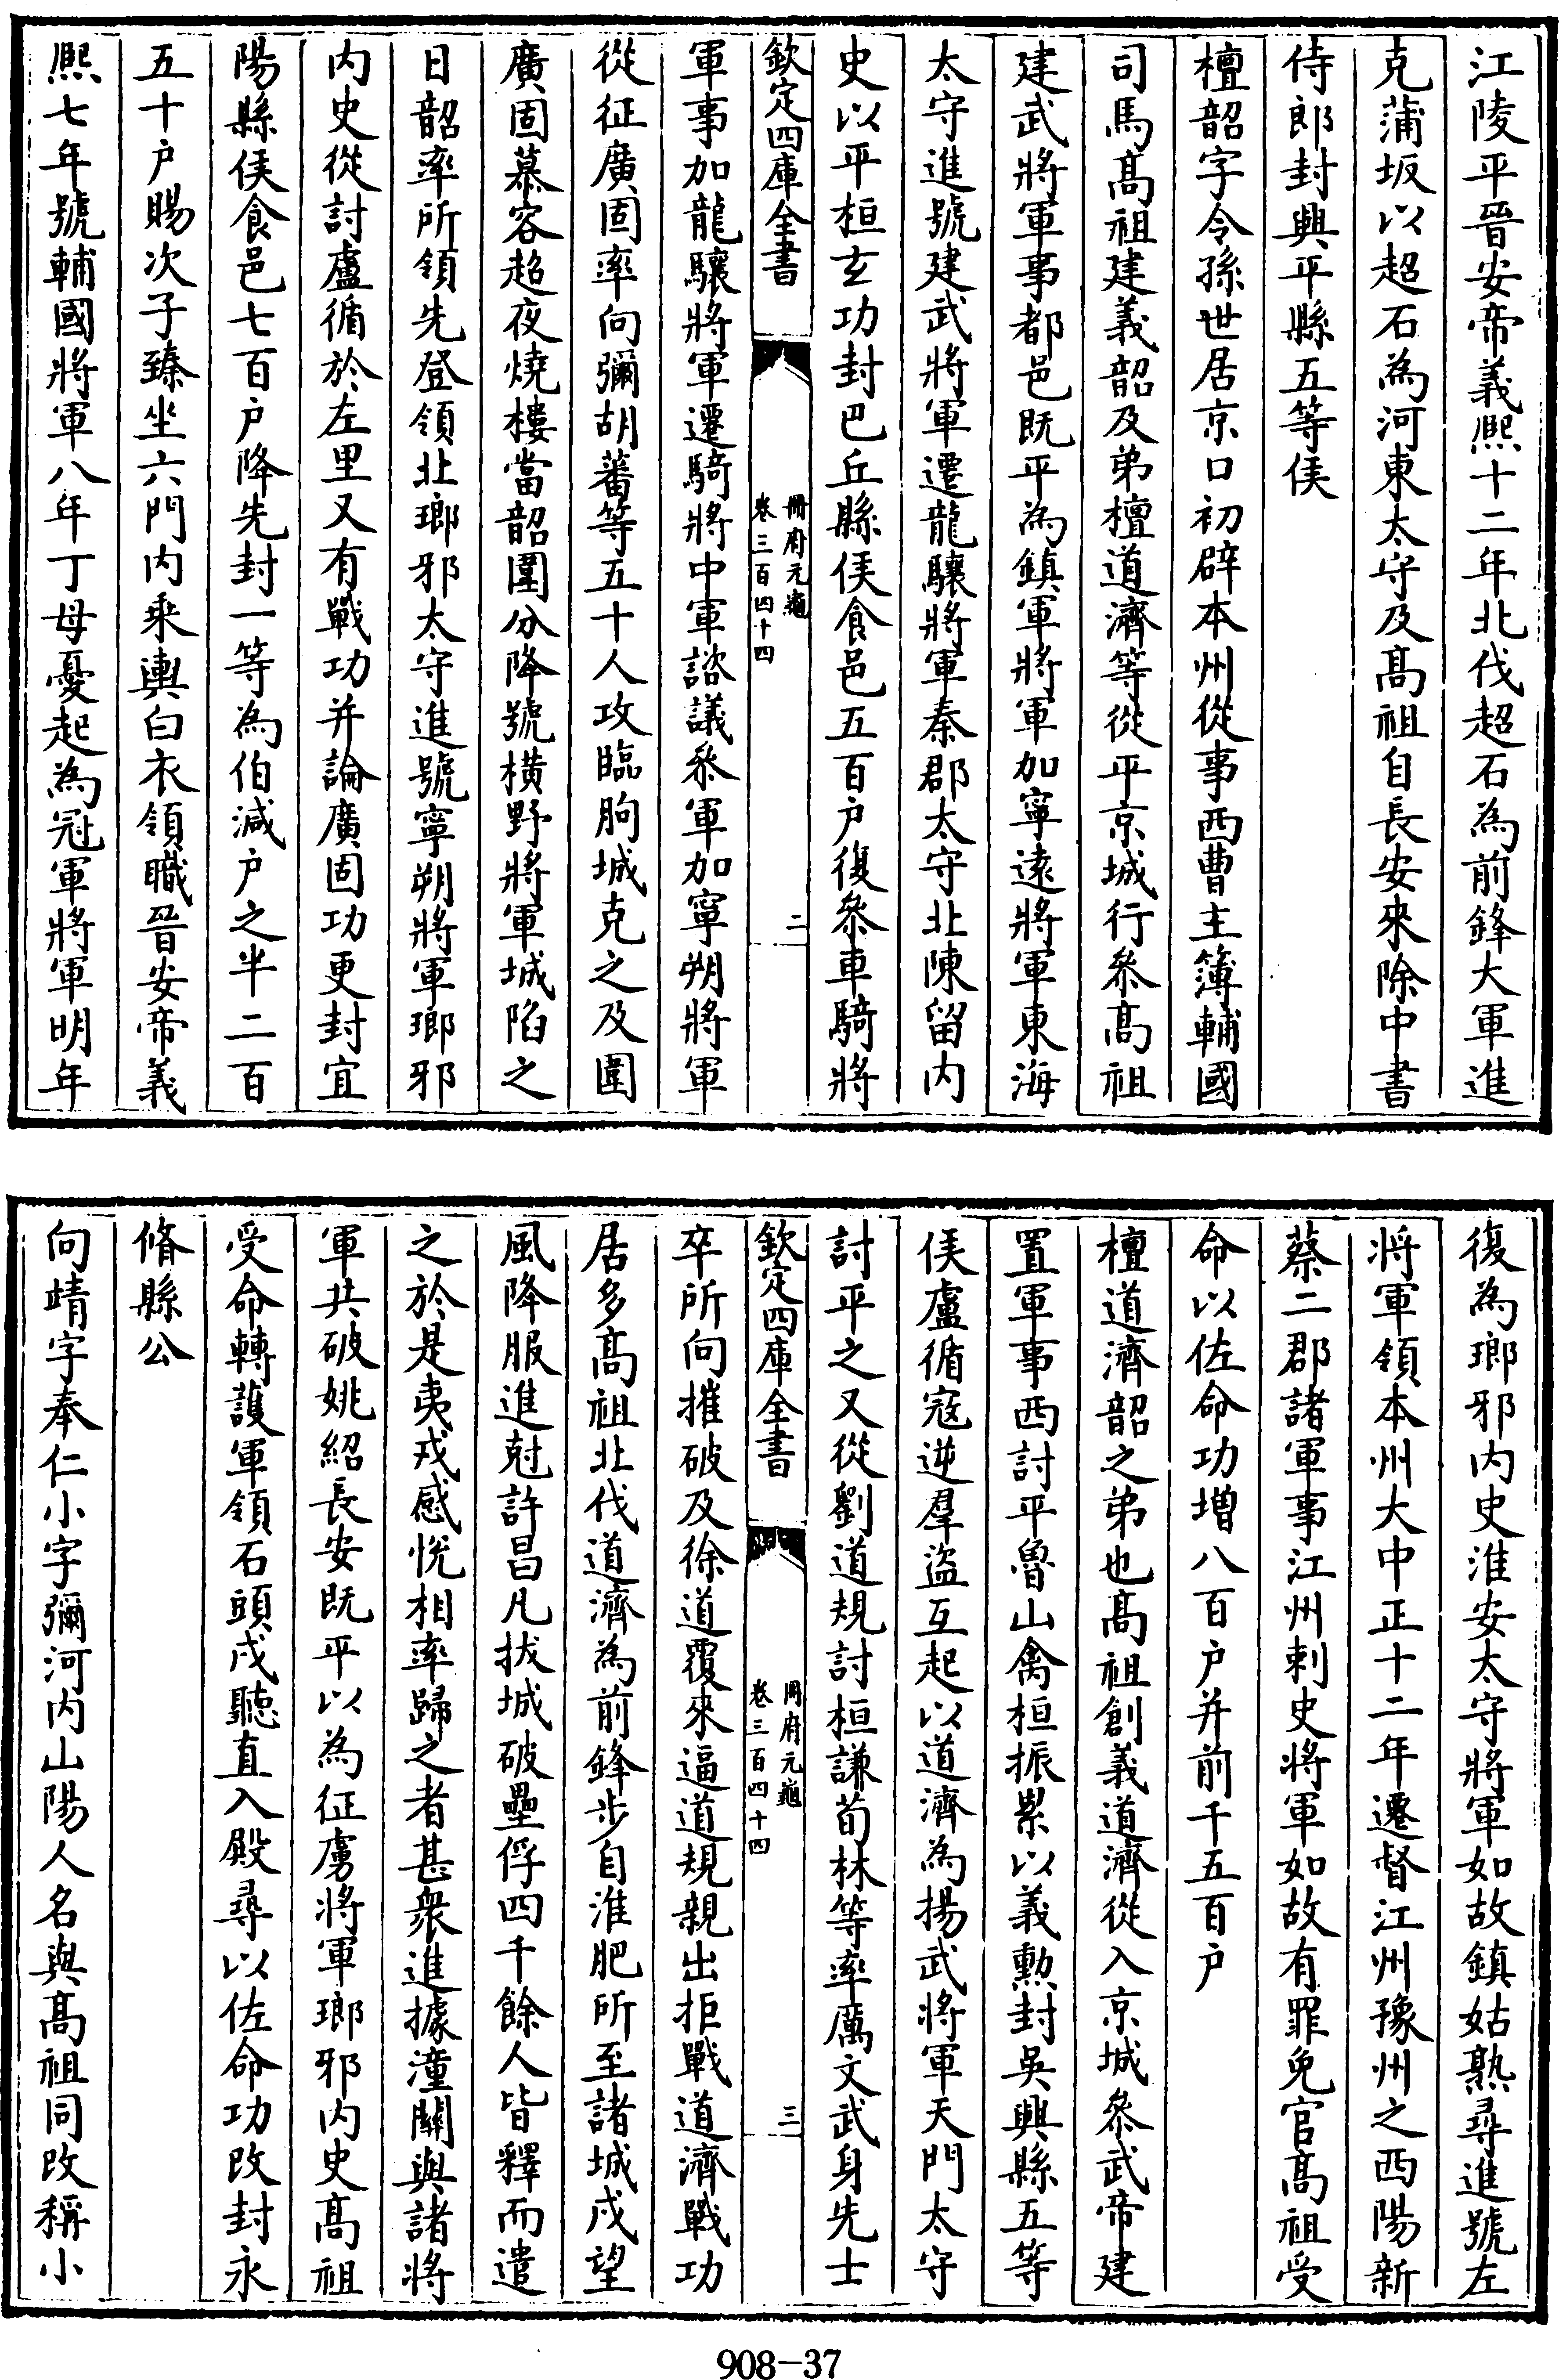 江陵平晉安帝義熈十二年北伐超石為前鋒大軍進
克蒲坂以超石為河東太守及髙祖自長安來除中書
侍郎封興平縣五等侯
檀韶字令孫世居京口初辟本州從事西曹主簿輔國
司馬髙祖建義韶及弟檀道濟等從平京城行叅髙祖
建武將軍事都邑既平為鎮軍將軍加寧遠將軍東海
太守進號建武將軍遷龍驤將軍秦郡太守北陳留内
史以平桓玄功封巴丘縣侯食邑五百户復叅車騎將
欽定四庫全書
冊府元龜
卷三百四十四
二
軍事加龍驤將軍遷騎將中軍諮議叅軍加寧朔將軍
從征廣固率向彌胡蕃等五十人攻臨朐城克之及圍
廣固慕容超夜燒樓當韶圍分降號横野將軍城陷之
日韶率所領先登領北瑯邪太守進號寧朔將軍瑯邪
内史從討盧循於左里又有戰功并論廣固功更封宜
陽縣侯食邑七百户降先封一等為伯減户之半二百
五十户賜次子臻坐六門内乘輿白衣領職晉安帝義
熈七年號輔國將軍八年丁母憂起為冠軍將軍明年
復為瑯邪内史淮安太守將軍如故鎮姑熟尋進號左
將軍領本州大中正十二年遷督江州豫州之西陽新
蔡二郡諸軍事江州刺史將軍如故有罪免官髙祖受
命以佐命功增八百户并前千五百户
檀道濟韶之弟也髙祖創義道濟從入京城叅武帝建
置軍事西討平魯山禽桓振累以義勲封吳興縣五等
侯盧循寇逆羣盜互起以道濟為揚武將軍天門太守
討平之又從劉道規討桓謙荀林等率厲文武身先士
欽定四庫全書
冊府元龜
卷三百四十四
三
卒所向摧破及徐道覆來逼道規親出拒戰道濟戰功
居多髙祖北伐道濟為前鋒步自淮肥所至諸城戍望
風降服進尅許昌凡拔城破壘俘四千餘人皆釋而遣
之於是夷戎感悦相率歸之者甚衆進據潼關與諸將
軍共破姚紹長安既平以為征虜將軍瑯邪内史髙祖
受命轉護軍領石頭戍聽直入殿尋以佐命功改封永
脩縣公
向靖字奉仁小字彌河内山陽人名與髙祖同改稱小
908-37